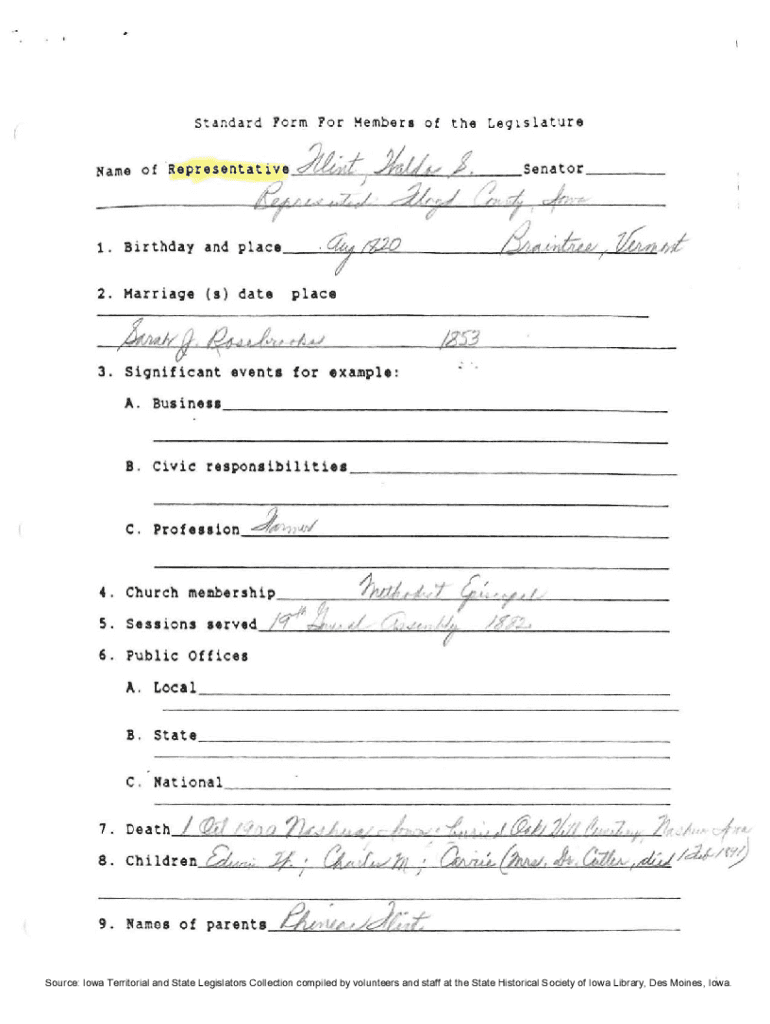 Standard Form For Members of the Legislature
Name of Representative Flint, Waldo S. Senator
Represented: Floyd County, Iowa
1. Birthday and place Aug 1820 Braintree, Vermont
2. Marriage (s) date place
Sarah J. Rosebrooks 1853
3. Significant events for example:
A. Business
B. Civic responsibilities
C. Profession Farmer
4. Church membership Methodist Episcopal
5. Sessions served 19th General Assembly 1882
6. Public Offices
A. Local
B. State
C. National
7. Death 1 Oct Nashua, Iowa; buried Oak Hill Cemetery, Nashua Iowa
8. Children Edwin H.; Charles M.; Carrie (Mrs. Dr. Cutler, died 1 Feb 1891)
9. Names of parents Phineas Flint
Source: Iowa Territorial and State Legislators Collection compiled by volunteers and staff at the State Historical Society of Iowa Library, Des Moines, Iowa.